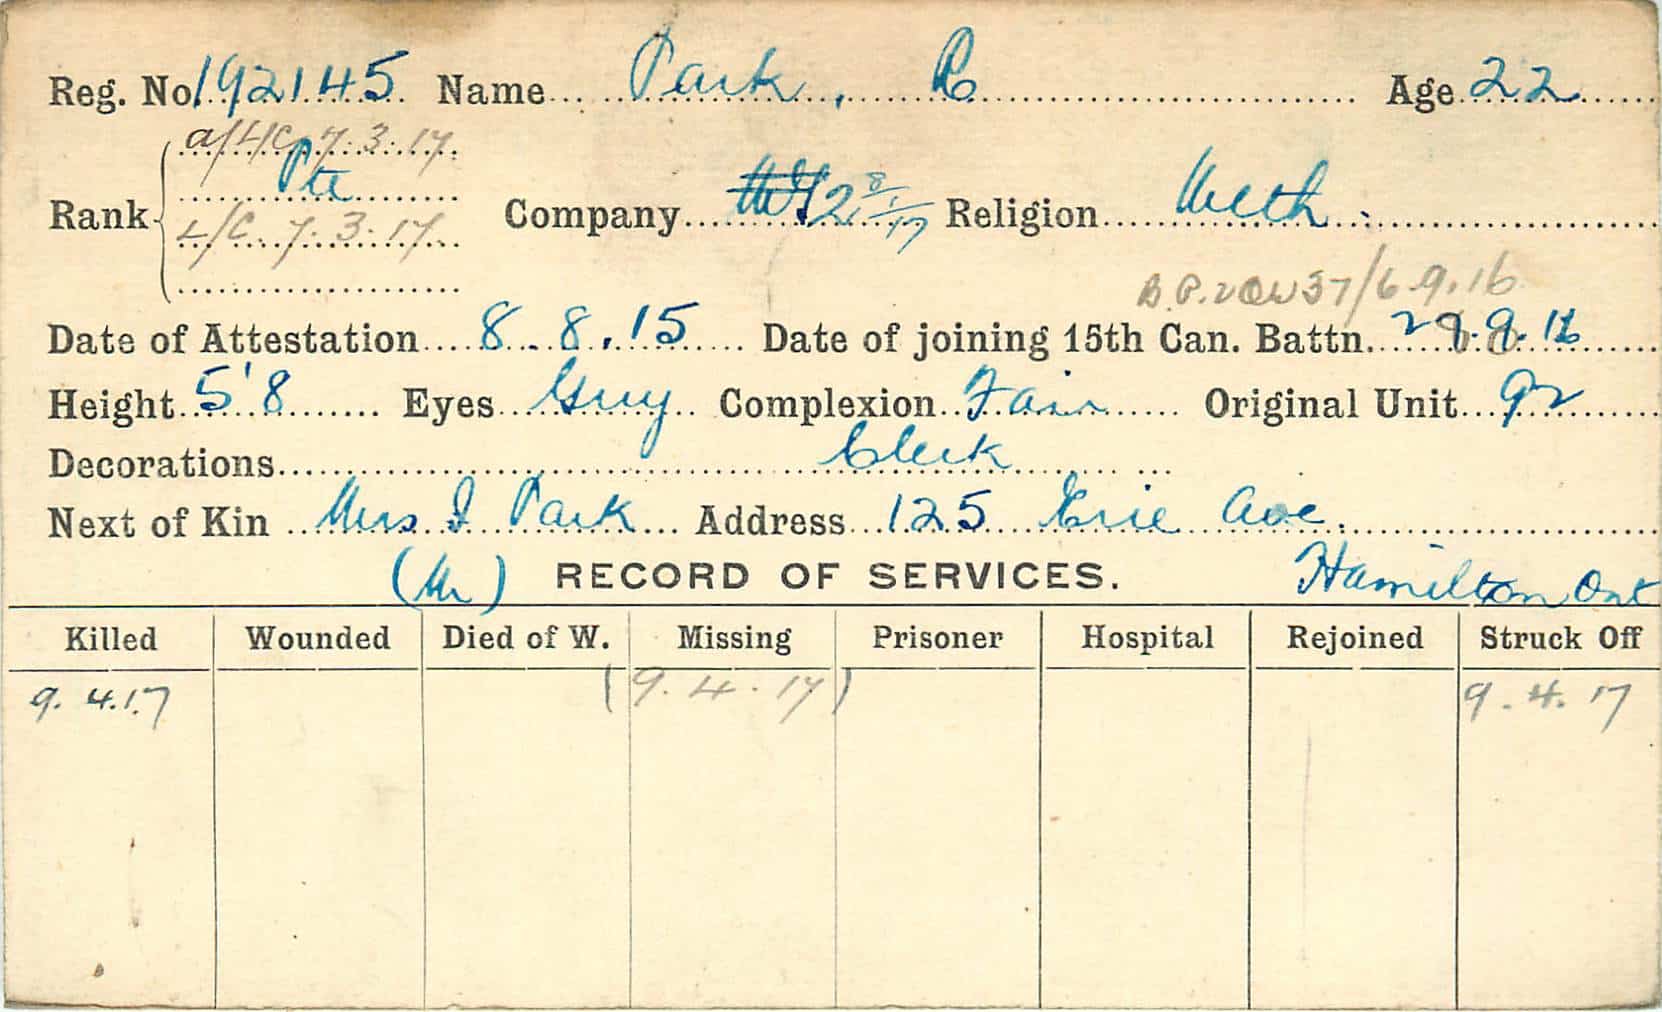 Reg. No. 192145 Name Park, R Age 22
a/L/C 7.3.17.
Pte
Rank L/C. 7.3.17. Company 2 8/1/17 Religion Meth.
B.P.2 37/6.9.16
Date of Attestation 8.8.15 Date of joining 15th Can. Battn. 9.16
Height 5'8 Eyes Grey Complexion Fair Original Unit 92
Decorations Clerk
Next of Kin Mrs J Park Address 125 Erie Ave.
(Mr) RECORD OF SERVICES. Hamilton Ont
Killed Wounded Died of W. Missing Prisoner Hospital Rejoined Struck Off
9.4.17 (9.4.17) 9.4.17